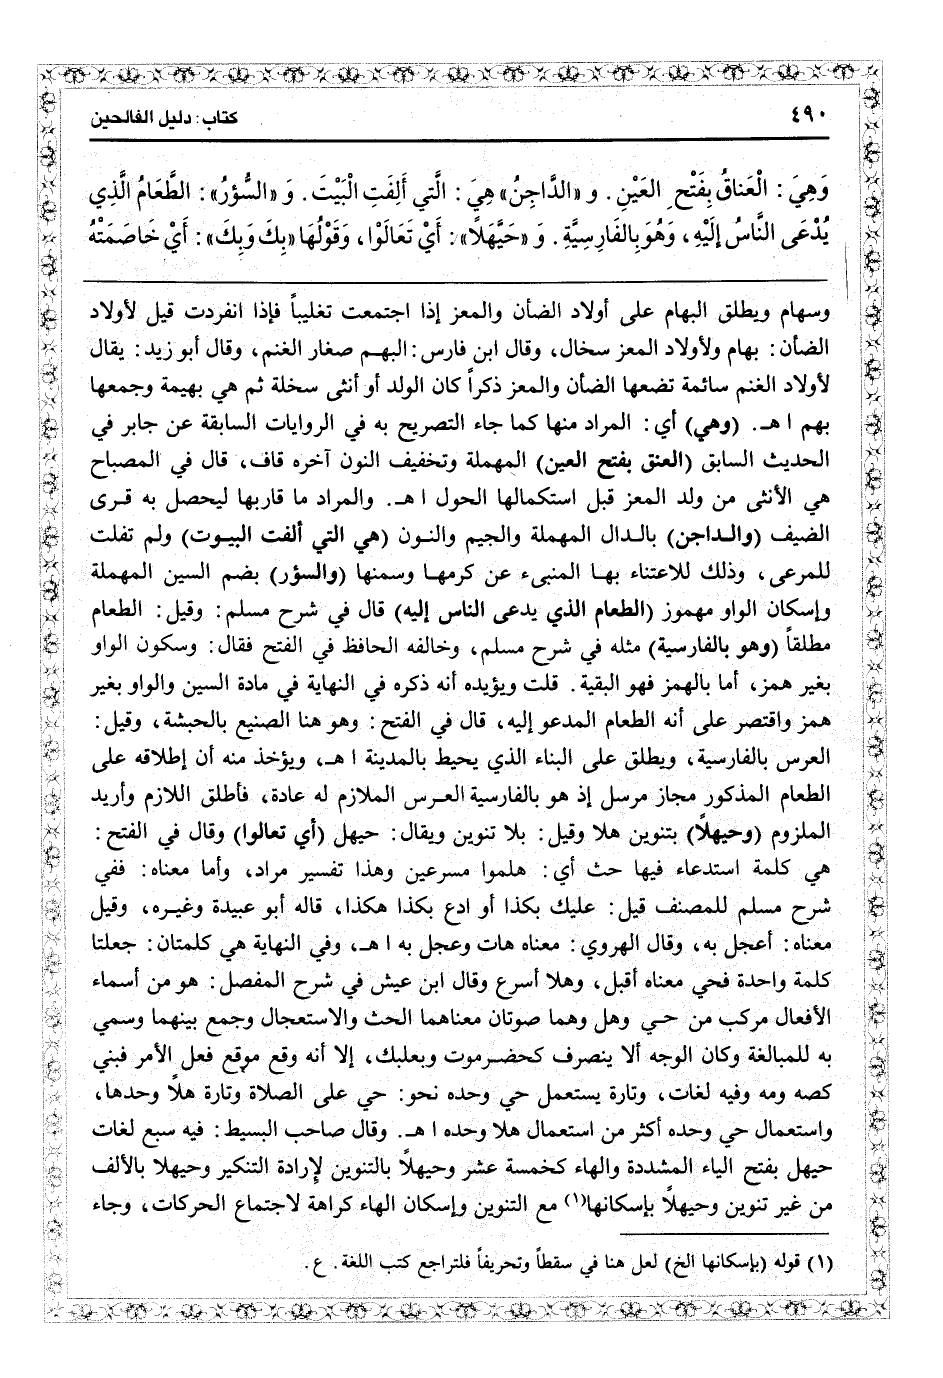 ٤٩٠
كتاب: دليل الفالحين
وَهِيَ: الْعَناقُ بِفَتْحِ العَيْنِ. و «الدَّاجِنُ» هِيَ: الَّتي أَلِفَتِ الْبَيْتَ. وَ «السُّؤرُ»: الطَّعَامُ الَّذِي
يُدْعَى النَّاسُ إِلَيْهِ، وَهُوَ بِالفَارِسِيَّةِ. وَ «حَيَّهَلاً»: أَيْ تَعَالَوْا، وَقَوْلُهَا «بِكَ وَبِكَ»: أَيْ خَاصَمَتْهُ
وسهام ويطلق البهام على أولاد الضأن والمعز إذا اجتمعت تغليباً فإذا انفردت قيل لأولاد
الضأن: بهام ولأولاد المعز سخال، وقال ابن فارس: البهم صغار الغنم، وقال أبو زيد: يقال
لأولاد الغنم سائمة تضعها الضأن والمعز ذكراً كان الولد أو أنثى سخلة ثم هي بهيمة وجمعها
بهم اهـ. (وهي) أي: المراد منها كما جاء التصريح به في الروايات السابقة عن جابر في
الحديث السابق (العنق بفتح العين) المهملة وتخفيف النون آخره قاف، قال في المصباح
هي الأنثى من ولد المعز قبل استكمالها الحول اهـ. والمراد ما قاربها ليحصل به قرى
الضيف (والداجن) بالدال المهملة والجيم والنون (هي التي ألفت البيوت) ولم تفلت
للمرعى، وذلك للاعتناء بها المنبىء عن كرمها وسمنها (والسؤر) بضم السين المهملة
وإسكان الواو مهموز (الطعام الذي يدعى الناس إليه) قال في شرح مسلم: وقيل: الطعام
مطلقاً (وهو بالفارسية) مثله في شرح مسلم، وخالفه الحافظ في الفتح فقال: وسكون الواو
بغير همز، أما بالهمز فهو البقية. قلت ويؤيده أنه ذكره في النهاية في مادة السين والواو بغير
همز واقتصر على أنه الطعام المدعو إليه، قال في الفتح: وهو هنا الصنيع بالحبشة، وقيل:
العرس بالفارسية، ويطلق على البناء الذي يحيط بالمدينة اهـ، ويؤخذ منه أن إطلاقه على
الطعام المذكور مجاز مرسل إذ هو بالفارسية العرس الملازم له عادة، فأطلق اللازم وأريد
الملزوم (وحيهلاً) بتنوين هلا وقيل: بلا تنوين ويقال: حيهل (أي تعالوا) وقال في الفتح:
هي كلمة استدعاء فيها حث أي: هلموا مسرعين وهذا تفسير مراد، وأما معناه: ففي
شرح مسلم للمصنف قيل: عليك بكذا أو ادع بكذا هكذا، قاله أبو عبيدة وغيره، وقيل
معناه: أعجل به، وقال الهروي: معناه هات وعجل به اهـ، وفي النهاية هي كلمتان: جعلتا
كلمة واحدة فحي معناه أقبل، وهلا أسرع وقال ابن عيش في شرح المفصل: هو من أسماء
الأفعال مركب من حي وهل وهما صوتان معناهما الحث والاستعجال وجمع بينهما وسمي
به للمبالغة وكان الوجه ألا ينصرف كحضرموت وبعلبك، إلا أنه وقع موقع فعل الأمر فبني
كصه ومه وفيه لغات، وتارة يستعمل حي وحده نحو: حي على الصلاة وتارة هلاً وحدها،
واستعمال حي وحده أكثر من استعمال هلا وحده اهـ. وقال صاحب البسيط: فيه سبع لغات
حيهل بفتح الياء المشددة والهاء كخمسة عشر وحيهلاً بالتنوين لإرادة التنكير وحيهلا بالألف
من غير تنوين وحيهلاً بإسكانها(١) مع التنوين وإسكان الهاء كراهة لاجتماع الحركات، وجاء
(١) قوله (بإسكانها الخ) لعل هنا في سقطاً وتحريفاً فلتراجع كتب اللغة. ع.